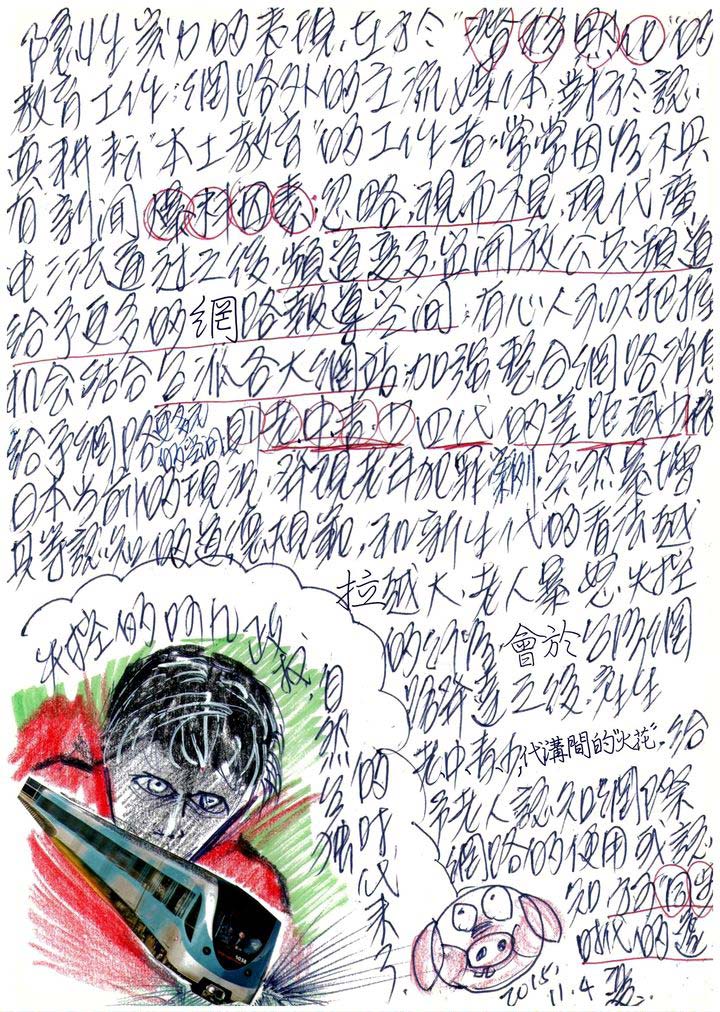 隱性暴力的表現,在於"潛移默化"的
教育工作;網路外的主流媒体,對於認
真耕耘"本土教育"的工作者,常常因為不具
有新聞爆料因素;忽略,視而不見,現代廣
電三法通過之後,頻道變多,並開放公共頻道
給予更多的網路報導空間;有心人可以把握
机会結合各派各大網站;加強整合網路消息
給予網路更多元的空間,則老.中.青.少四代的差距
日本当前的現況,
其等認知的道德規範,和新生代的看法越
拉越大,老人暴怒.失控
的行為,會於台灣網
路發達之後,產生
老.中.青.少代溝間的"火花",給
予老人認知網際
網路的使用或認
知,方可
時代的
失控的阿凡政权,
自然台獨
的時代來了.
2015.
11.4
1036